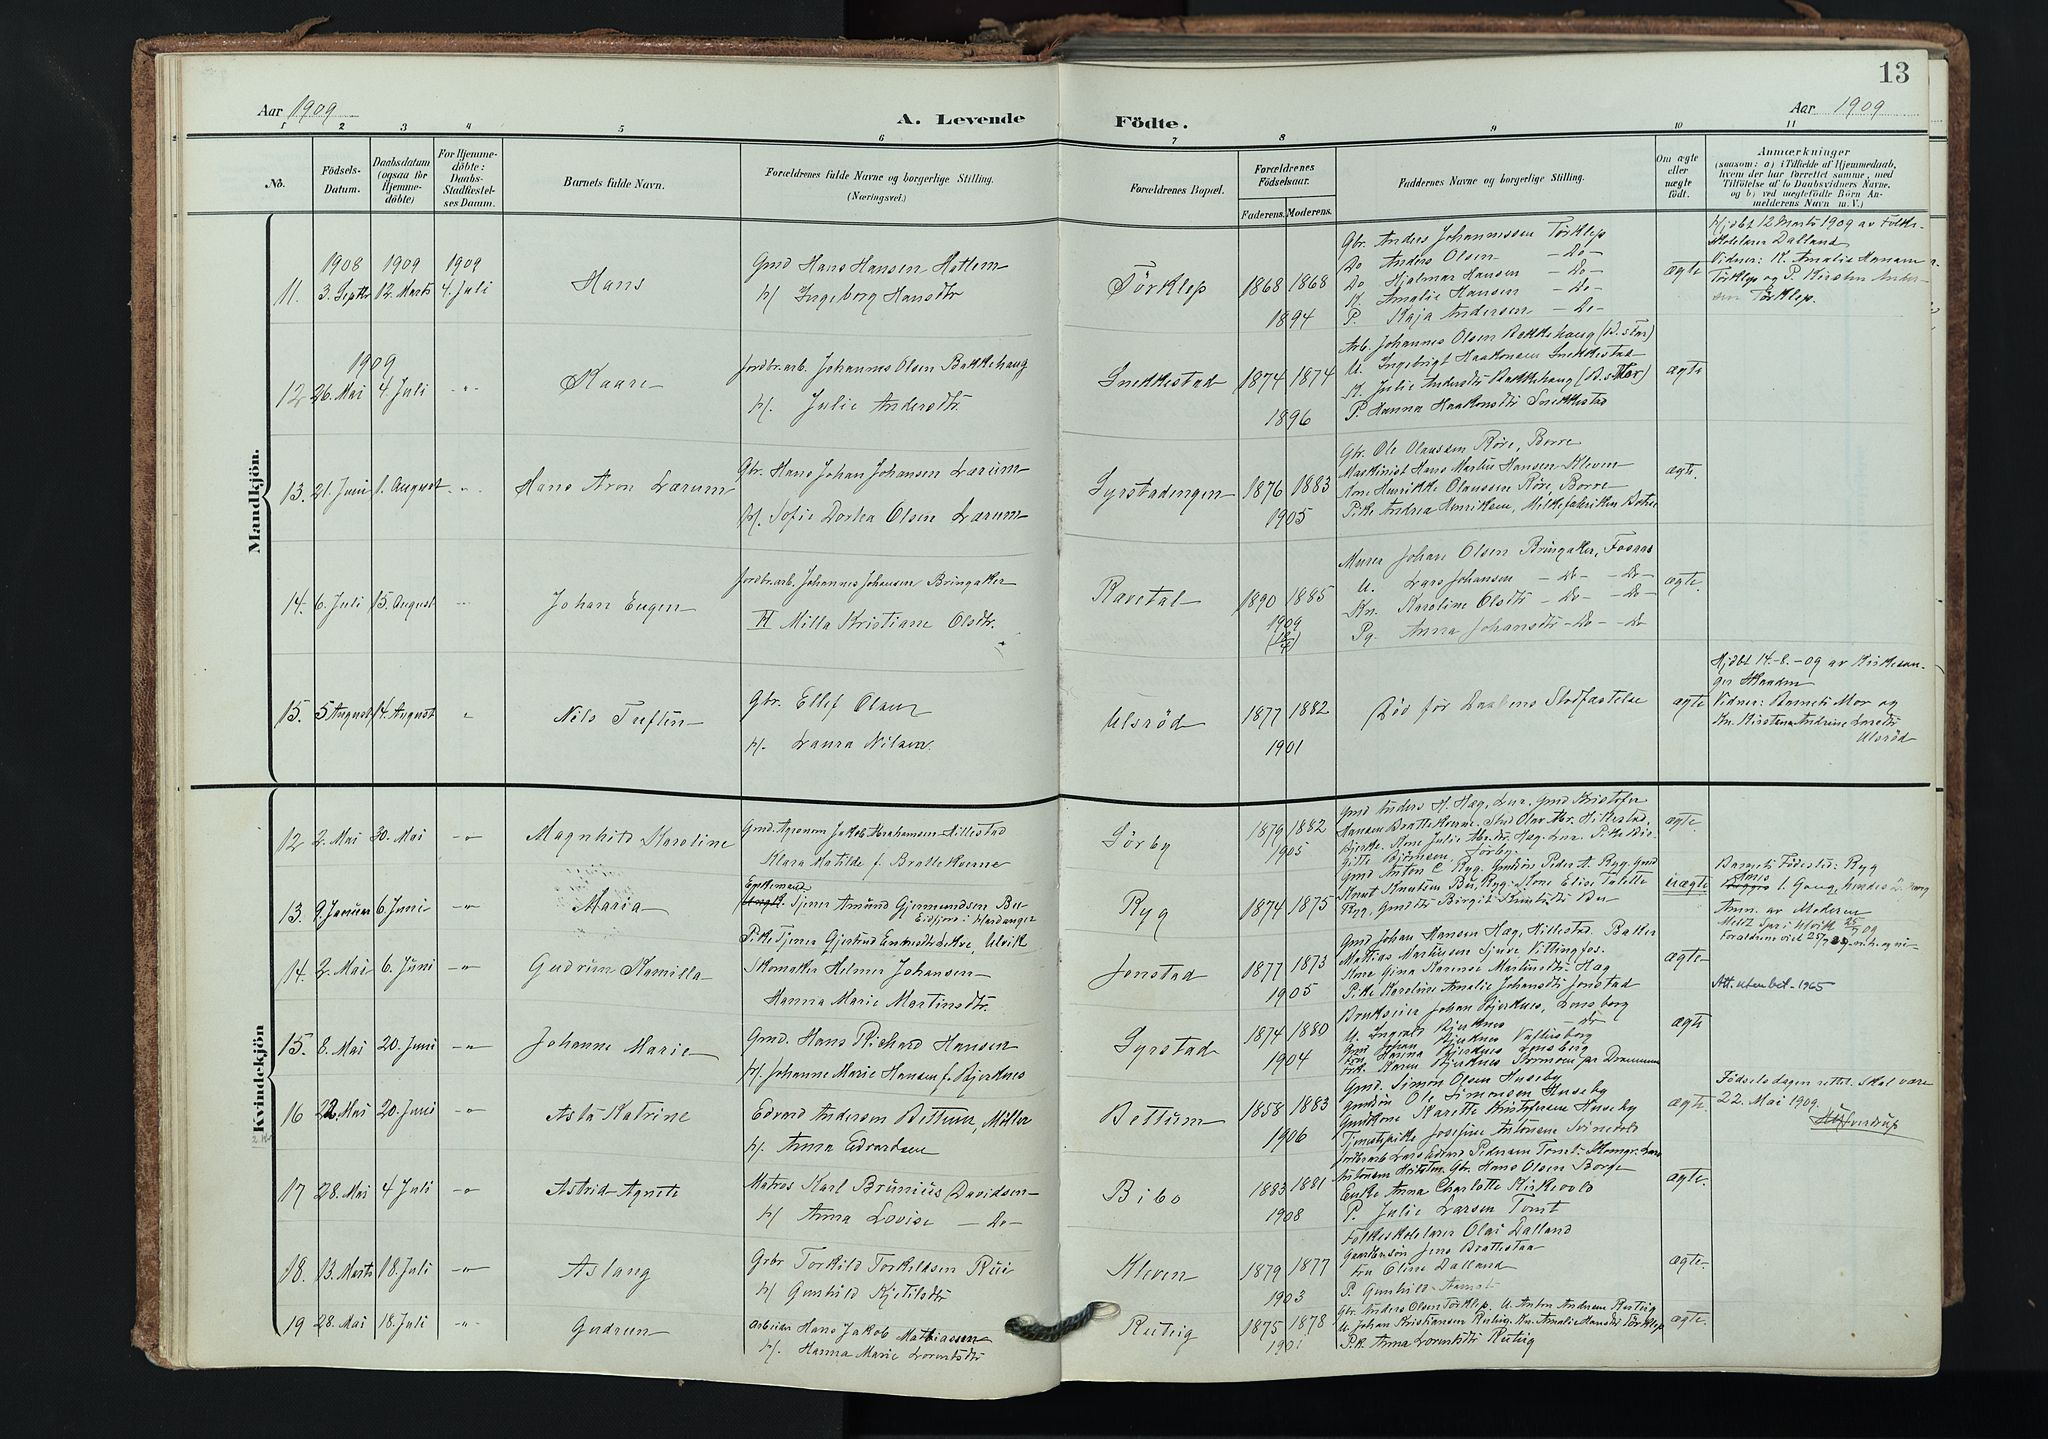 13
Aar 1909
A. Levende
Födte.
Aar 1909
1 2 3 4 5 6 7 8 9 10 11
No.
Födsels-Datum.
Daabsdatum (ogsaa for Hjemme-döbte)
For Hjemme-döbte: Daabs-Stadfæstelses Datum.
Barnets fulde Navn.
Forældrenes fulde Navne og borgerlige Stilling.
(Næringsvei.)
Forældrenes Bopæl.
Forældrenes Födselsaar.
Faderens. Moderens.
Faddernes Navne og borgerlige Stilling.
Om ægte eller uægte födt.
Anmærkninger
(saasom: a) i Tilfælde af Hjemmedaab, hvem der har forrettet samme, med Tilföielse af to Daabsvidners Navne, og b) ved uægtefödte Börn Anmelderens Navn m. V.)
Mandkjön.
11. 1908 3. Septbr 1909 12. Marts 1909 4. Juli
Hans
Gmd Hans Hansen
h/ Ingeborg Hansdtr
Törklep
1868 1868
1894
Gbr. Anders Johannessen Törklep
Do Anders Olsen - Do -
Do Hjalmar Hansen - Do -
K. Amalie Hansen - Do -
P. Kaja Andersen - Do -
ægte
Hjdbt 12 Marts 1909 av Folkeskolelærer Dalland
Vidner: K. Amalie Hansen Törklep og P. Kirsten Andersen Törklep.
12 1909 26. Mai 4. Juli -"-
Kaare
Jordbr.arb. Johannes Olsen Bakkehaug
h/. Julie Andersdtr.
Snekkestad
1874 1874
1896
Arb. Johannes Olsen Bakkehaug (B. Far)
U. Ingebrigt Haakonsen Snekkestad
K. Julie Andersdtr Bakkehaug (B. Mor)
P. Hanna Haakonsdtr Snekkestad
ægte
13. 21. Juni 1. August -"-
Hans Aron Lærum
Gbr. Hans Johan Johansen Lærum
h/. Sofie Dortea Olsen Lærum
Syrstadengen
1876 1883
1905
Gbr. Ole Olaussen Röre, Borre
Maskinist Hans Martin Hansen Kleven
Kone Henrikke Olaussen Röre, Borre
Pike Andrea Henriksen, Melkefabriken
ægte
14. 6. Juli 15. August -"-
Johan Eugen
Jordbr.arb. Johannes Johansen Bringaker
H Milla Kristiane Olsdtr.
Ravetal
1890 1885
1909
Murer Johan Olsen Bringaker, Fossan
U. Lars Johansen - Do - - Do -
Kn. Karoline Olsdtr - Do - - Do -
Pg. Anna Johansdtr - Do - - Do
ægte
15. 5 August 14. August "
Nils Tuften
Gbr. Ellef Olsen
h/. Laura Nilsen
Ulsröd
1877 1882
1901
Död för Daabens Stadfæstelse
ægte
Hjdbt 14-8.-09 av Kirkesanger
Vidner: Barnets Mor og
Kn. Kirstena Andrine Larsdtr Ulsröd
Kvindekjön
12 2. Mai 30. Mai -"-
Magnhild Karoline
Gmd. Agronom Jakob Abrahamsen Hillestad
Klara Matilde f. Brattekverne
Sörby
1879 1882
1905
Gmd Anders H. Hæg, Lur. Gmd Kristofer Hansen Brattekverne. Stud Olav Abr. Hillestad, Kone Julie Abr.dtr. Hæg, Lur. Pike Birgitte Björnsen, Sörby.
ægte
13. 9. Januar 6. Juni -"-
Maria
Enkemand Tjener Amund Gjermundsen Bu Eidfjord i Hardanger
Pike Tjener Gjertrud, Ulvik
Ryg
1874 1875
Gmd Anton C Ryg. Gmdsön Peder A. Ryg. Gmd Knut Knutsen Bu, Ryg. Kone Elise Talette Ryg. Gmddtr Birgit Knutsdtr Bu
uægte
Barnets Födested: Ryg
Hans 1. Gang, hendes 2. Gang
Anm. av Moderen
Meldt Spr i Ulvik 25/7 09
14. 2. Mai 6. Juni -"-
Gudrun Kamilla
Skomaker Helmer Johansen
Hanna Marie Martinsdtr.
Jonstad
1877 1873
1905
Gmd Johan Hansen Hæg, Hillestad. Baker Mathias Martinsen Vittingfos.
Kone Gina Karense Martinsdtr. Hæg
Pike Karoline Amalie Johansdtr Jonstad
ægte
Att. uten bet. - 1965
15. 8. Mai 20. Juni -"-
Johanne Marie
Gmd. Hans Richard Hansen
h/. Johanne Marie Hansen f. Bjerknes
Syrstad
1874 1880
1904
Brukseier Johan Bjerknes, Tönsberg
U. Ingvald Bjerknes - do
Gmd Johan Bjerknes
Frk. Hanna Bjerknes Tönsberg
Frk. Karen Bjerknes Strömsö pr Drammen
ægte
16 22. Mai 20. Juni -"-
Asta Katrine
Edvard Andersen Bettum, Möller
h/. Anna Edvardsen
Bettum
1858 1883
1906
Gmd. Simon Olsen Huseby
Gmdsön Ole Simonsen Huseby
Gmdkone Karette Kristofersen Huseby
Tjenestepike Josefine Antonsen
ægte
Födselsdagen rettet. Skal være
22. Mai 1909.
17 28. Mai 4 Juli -"-
Astrid Agnete
Matros Karl Brunius Davidsen
h/ Anna Lovise - Do -
Bibo
1883 1881
1908
Jordbr.arb Lars Edvard Pedersen Tomt. Antonsen. Gbr. Hans Olsen Borge
Enke Anna Charlotte Kirkevold
P. Julie Larsen Tomt
ægte.
18. 13. Marts 18. Juli -"-
Aslaug
Grbr Torkild Torkildsen Rui
h/ Gunhild Kjetilsdtr
Kleven
1879 1877
1903
Folkeskolelærer Olai Dalland
Gaardssön Jens Brattestaa
Fru Eline Dalland
P. Gunhild Aamot
ægte
19 28. Mai 18. Juli -"-
Gudrun
Arbeider Hans Jakob Mathiassen
h/. Hanna Marie Lorentsdtr
Rutvig
1875 1878
1901
Gbr. Anders Olsen Törklep. U. Anton Andersen Rutvig
U. Johan Kristiansen Rutvig. Kn. Amalie Hansdtr Törklep
P.k. Anna Lorentsdtr Rutvig
ægte.